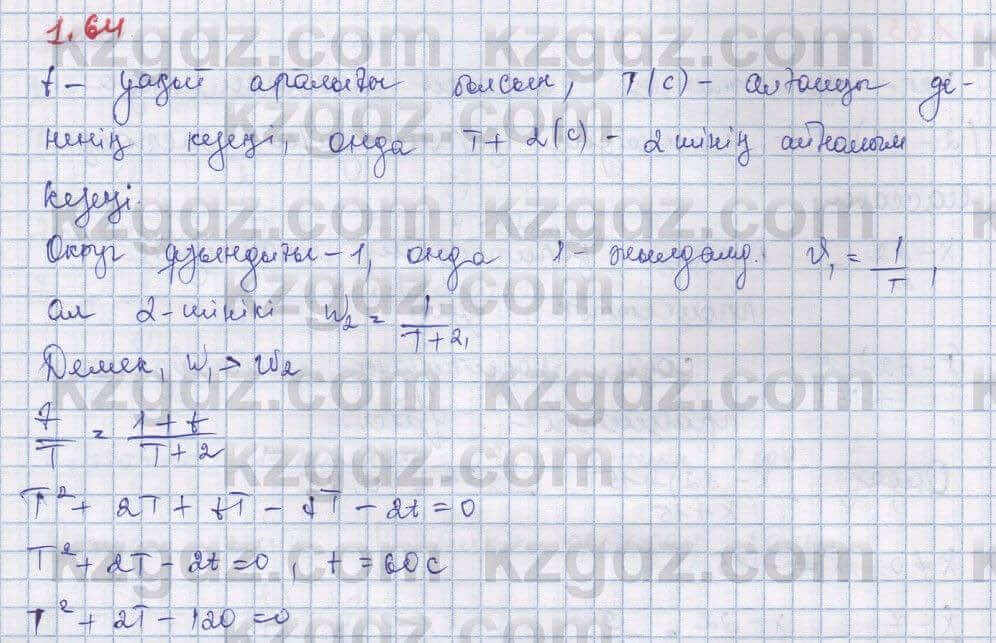 1.64
t – уақыт аралығы болсын, T(c) – алғашқы де-
ненің кезеңі, онда T + 2(c) – 2 шінің айналым
кезеңі.
Округ ұзындығы – 1, онда 1 – жылдамд. v₁ = 1/T,
ал 2-шінікі w₂ = 1/(T+2),
Демек, w₁ > w₂
t/T = (1+t)/(T+2)
T² + 2T + tT – tT – 2t = 0
T² + 2T – 2t = 0, t = 60c
T² + 2T – 120 = 0
kzgdz.com